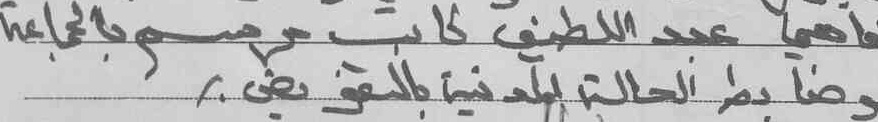 عبد اللطيف كاتب مرسم بالجماعة
وضابط الحالة المدنية بالتفويض ./.